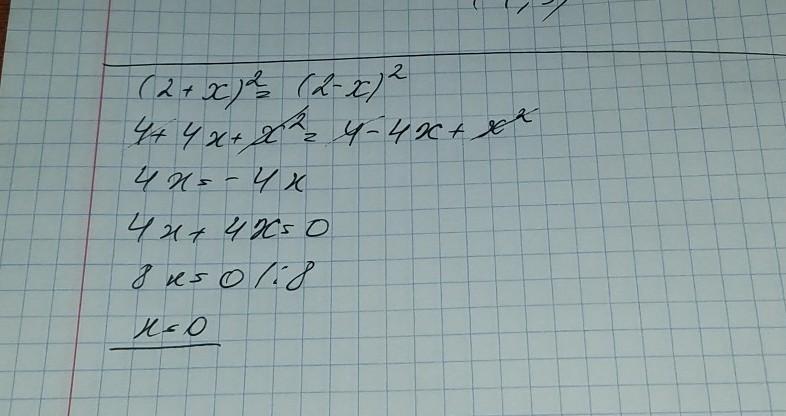 (2+x)²=(2-x)²
4+4x+x²=4-4x+x²
4x=-4x
4x+4x=0
8x=0/:8
x=0